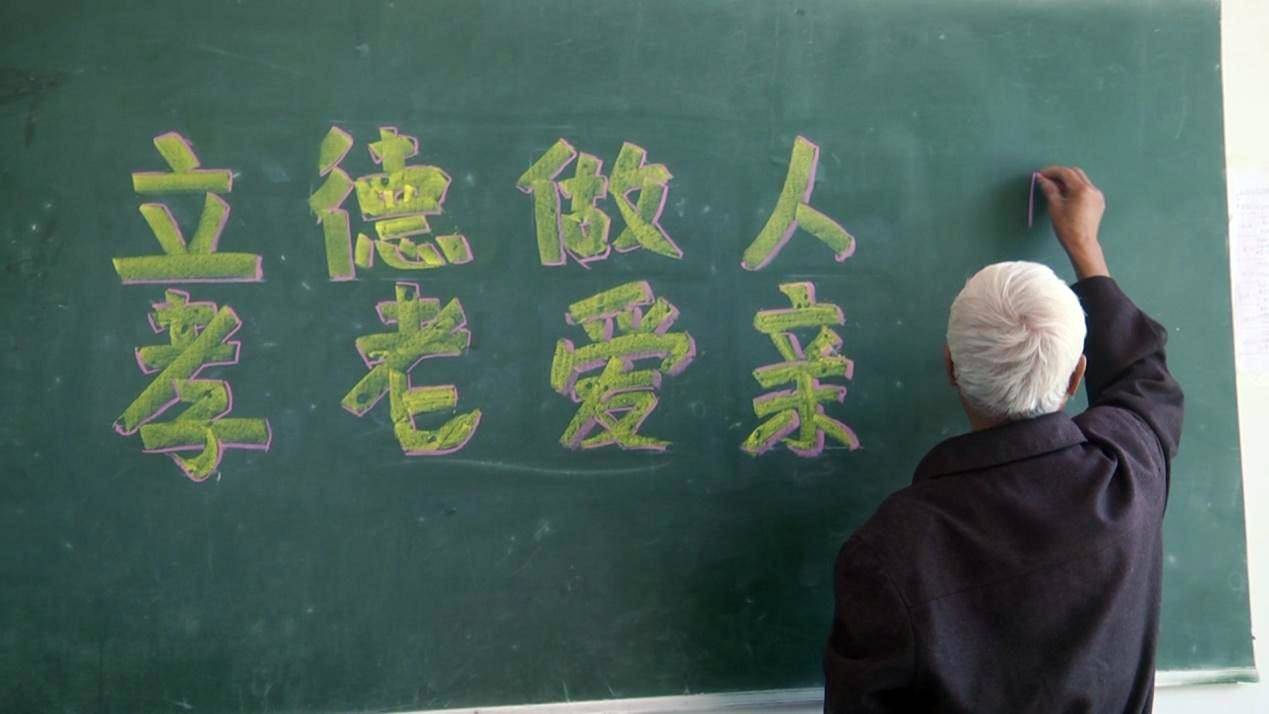 立德做人
孝老爱亲